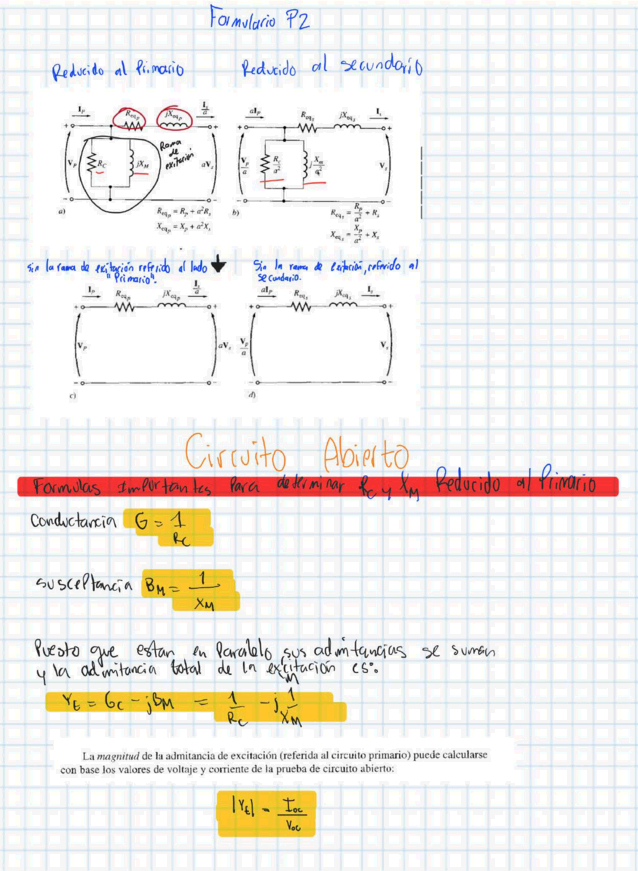 Formulario P2
Reducido al Primario
Reducido al secundario
I_p
R_eq_p
jX_eq_p
I_s/a
+
+
V_p
R_C
jX_M
Rama de exitación
aV_s
a)
R_eq_p = R_p + a²R_s
X_eq_p = X_p + a²X_s
aI_p
R_eq_s
jX_eq_s
I_s
+
+
V_p/a
R_c/a²
j X_m/a²
V_s
b)
R_eq_s = R_p/a² + R_s
X_eq_s = X_p/a² + X_s
Sin la rama de exitación referido al lado
"Primario".
Sin la rama de exitación, referido al
secundario.
I_p
R_eq_p
jX_eq_p
I_s/a
+
+
V_p
aV_s
c)
aI_p
R_eq_s
jX_eq_s
I_s
+
+
V_p/a
V_s
d)
Circuito Abierto
Formulas Importantes Para determinar R_C y X_M Reducido al Primario
Conductancia G = 1/R_C
susceptancia B_M = 1/X_M
Puesto que estan en Paralelo sus admitancias se suman
y la admitancia total de la excitación es:
Y_E = G_C - jB_M = 1/R_C - j 1/X_M
M
La magnitud de la admitancia de excitación (referida al circuito primario) puede calcularse
con base los valores de voltaje y corriente de la prueba de circuito abierto:
|Y_E| = I_oc/V_oc